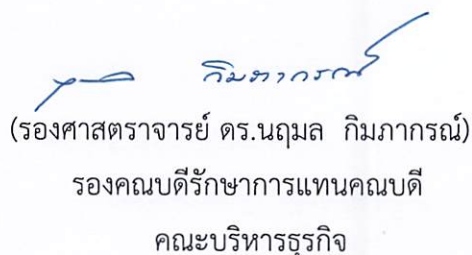 กิมภากรณ์
(รองศาสตราจารย์ ดร.นฤมล กิมภากรณ์)
รองคณบดีรักษาการแทนคณบดี
คณะบริหารธุรกิจ